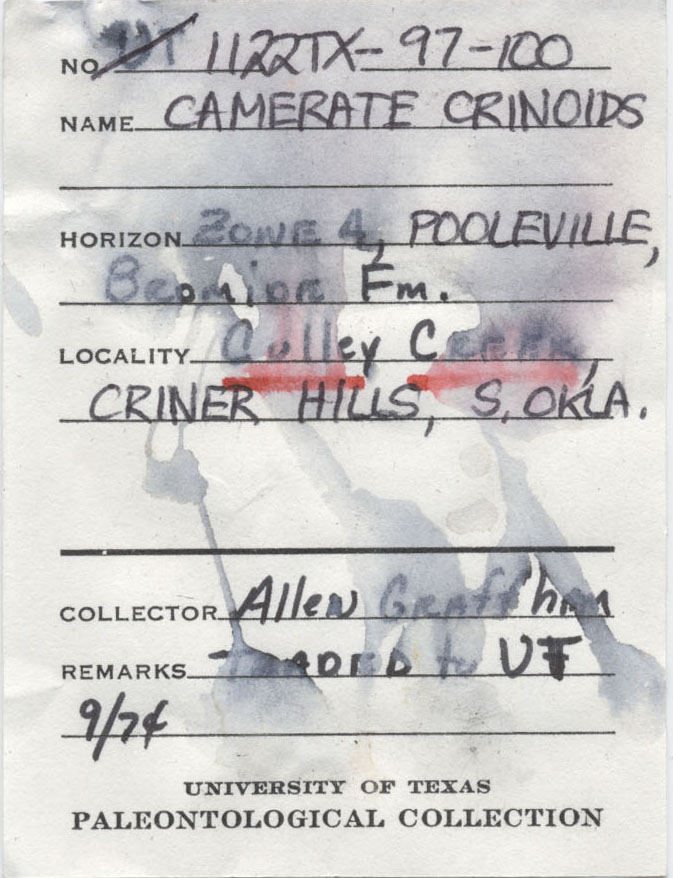 NO UT 1122TX-97-100
NAME CAMERATE CRINOIDS
HORIZON ZONE 4, POOLEVILLE,
Bromide Fm.
LOCALITY Culley Creek,
CRINER HILLS, S. OKLA.
COLLECTOR Allen Graffham
REMARKS TRADED to UT
9/74
UNIVERSITY OF TEXAS
PALEONTOLOGICAL COLLECTION